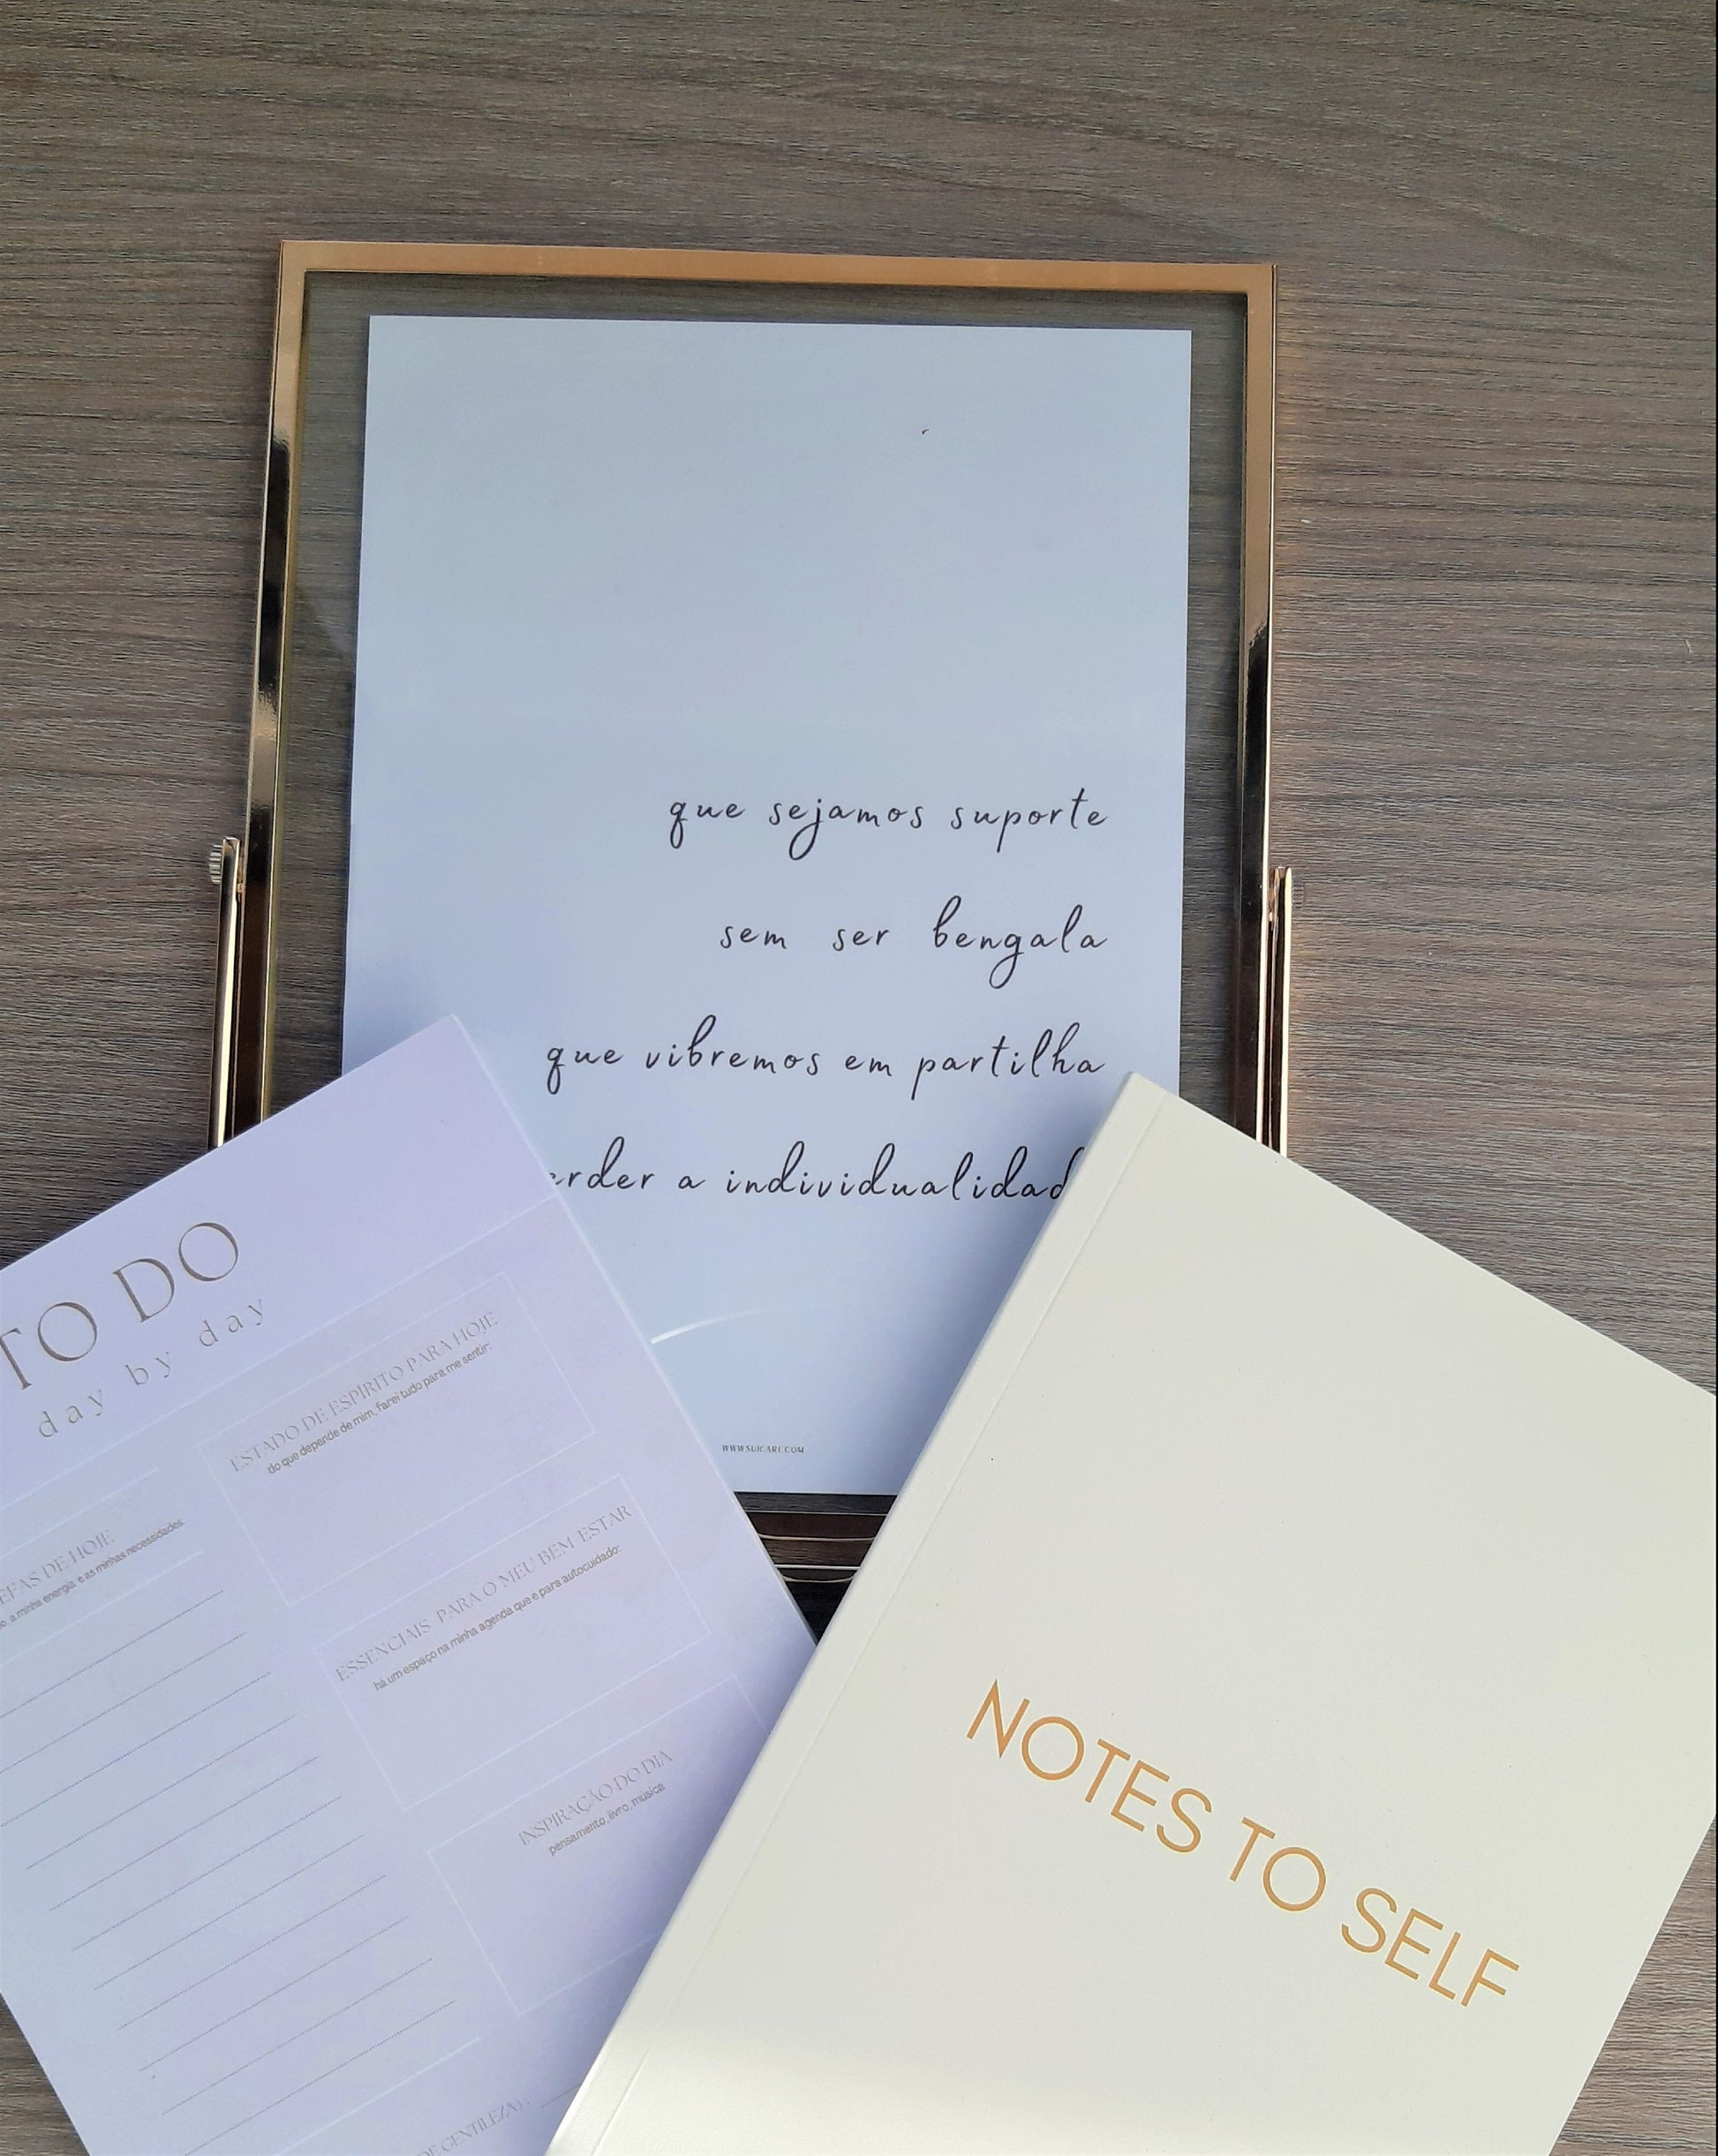 que sejamos suporte
sem ser bengala
que vibremos em partilha
erder a individualidad
WWW.SUICARE.COM
TO DO
day by day
ESTADO DE ESPÍRITO PARA HOJE
do que depende de mim, farei tudo para me sentir:
EFAS DE HOJE
a minha energia e as minhas necessidades
ESSENCIAIS PARA O MEU BEM ESTAR
há um espaço na minha agenda que é para autocuidado:
INSPIRAÇÃO DO DIA
pensamento, livro, música
DE GENTILEZA):
NOTES TO SELF